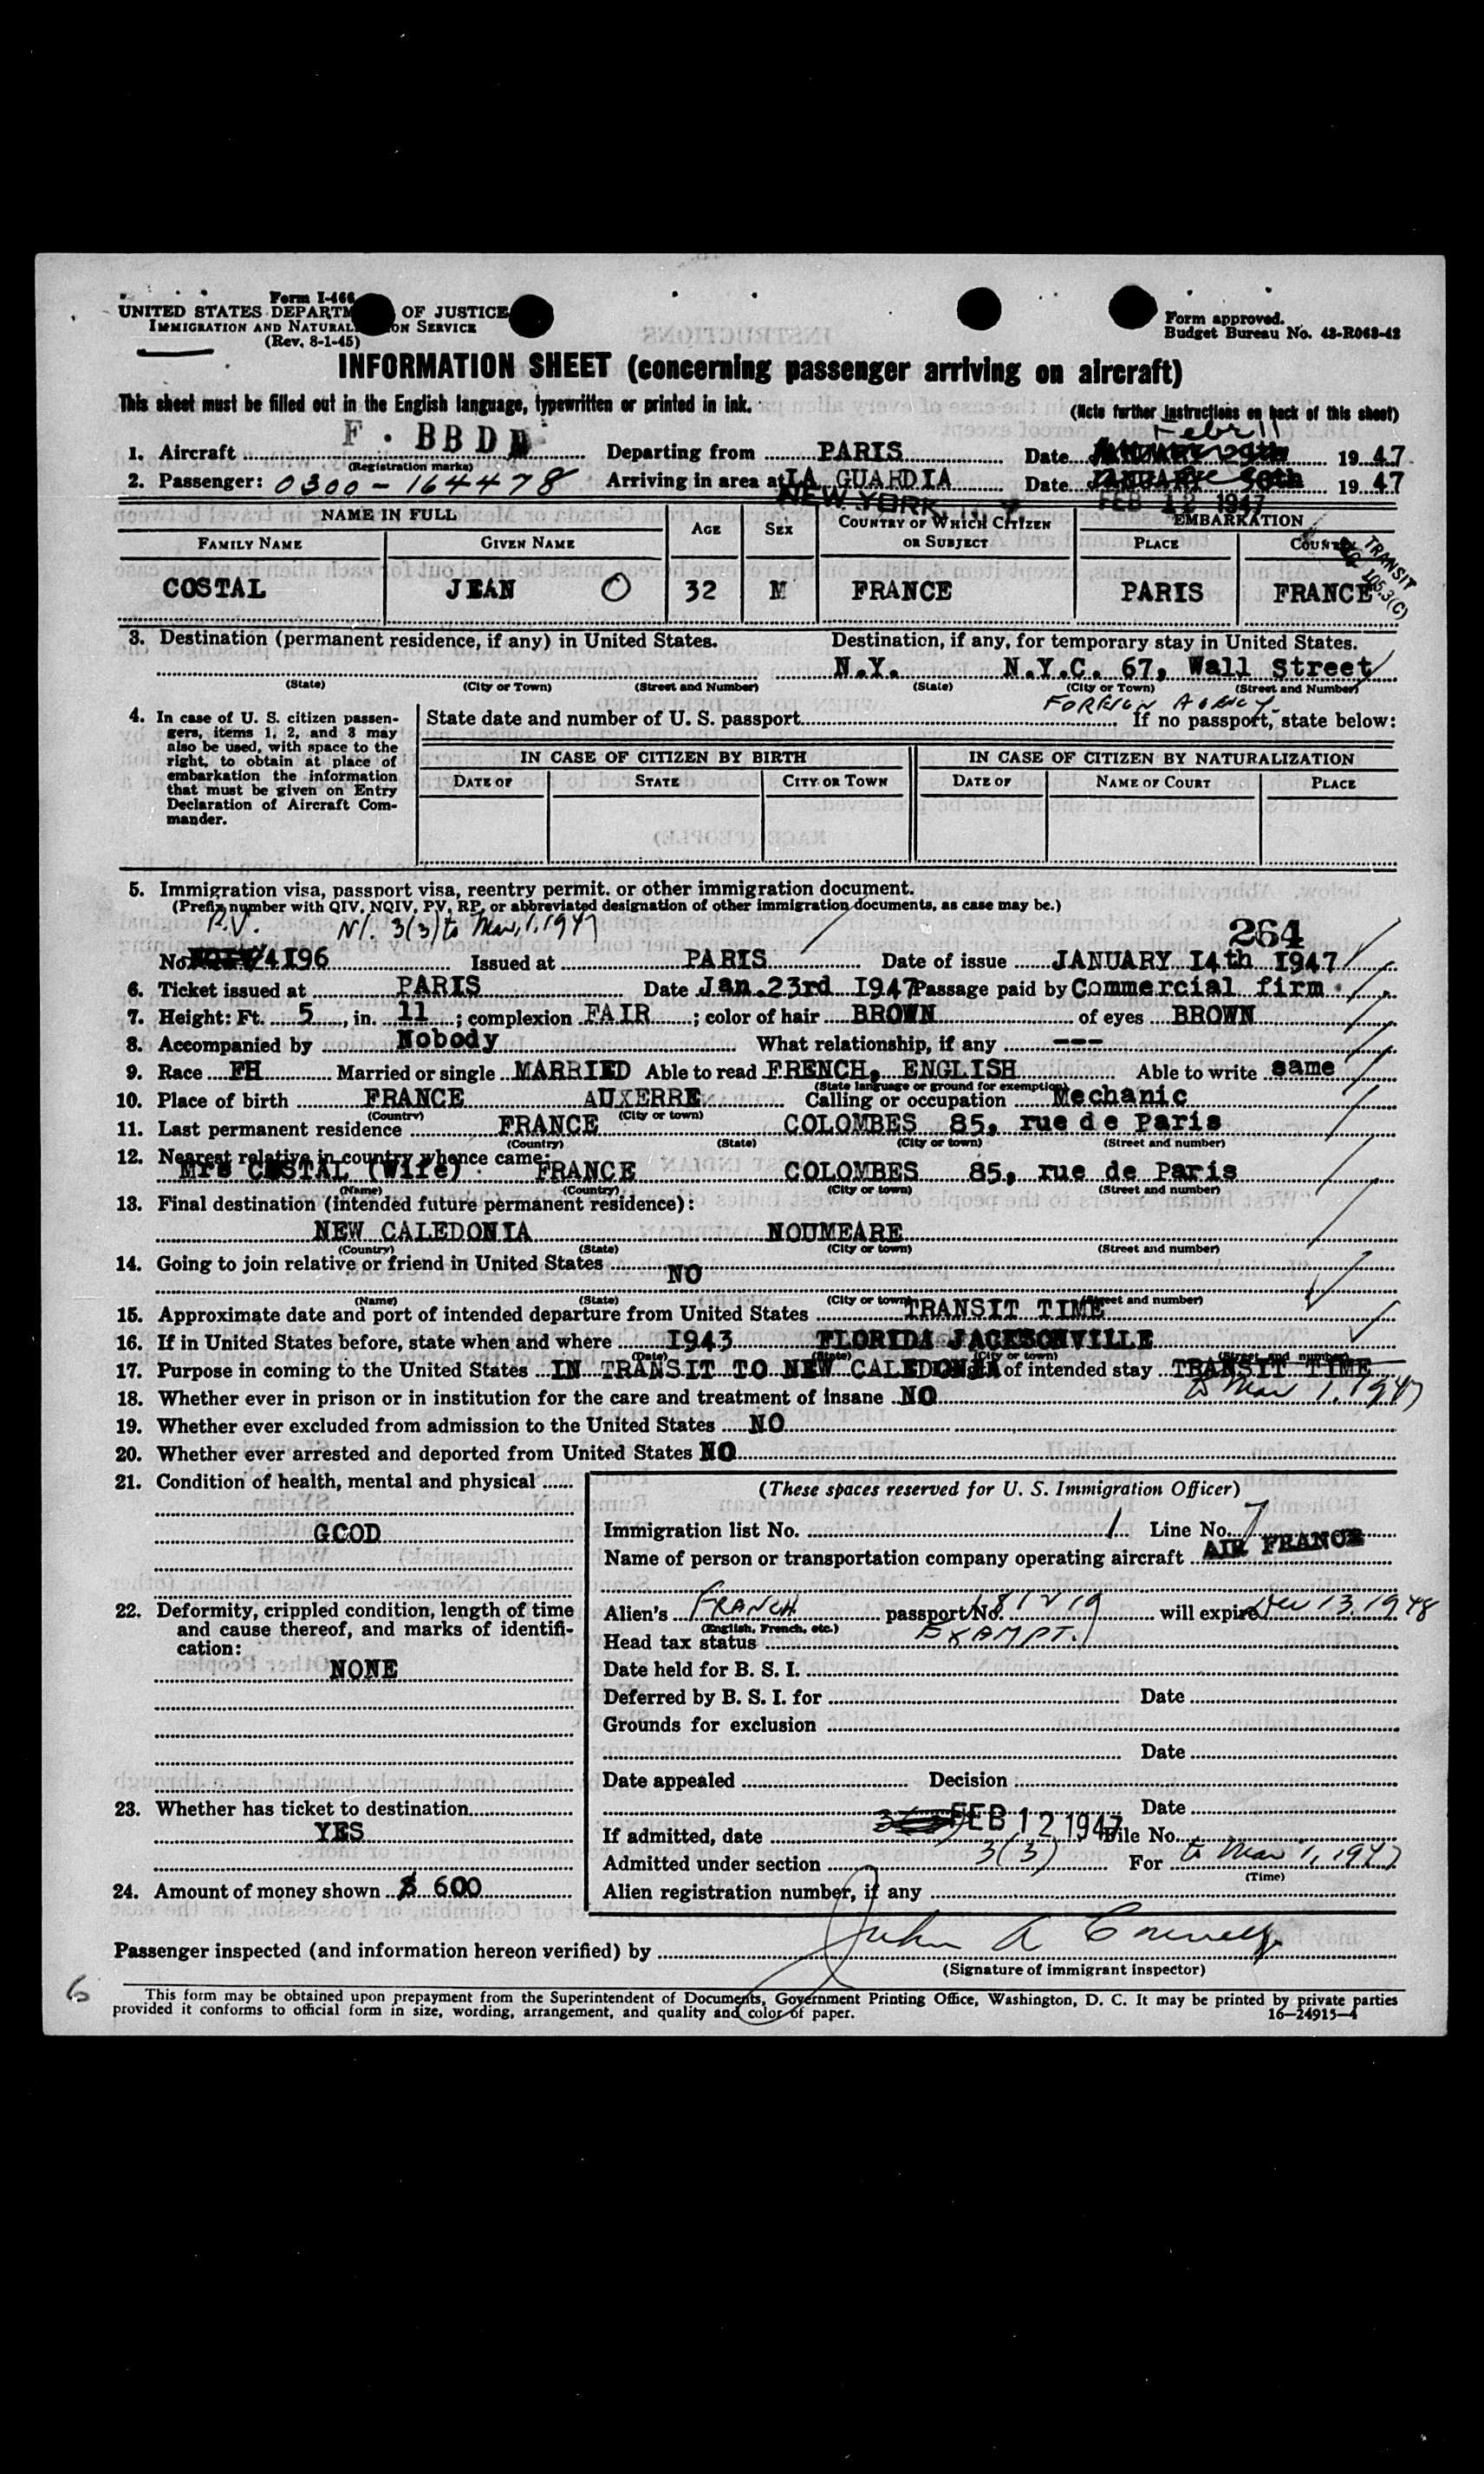 Form I-466
UNITED STATES DEPARTM OF JUSTICE
IMMIGRATION AND NATURAL ON SERVICE
(Rev. 8-1-45)
Form approved.
Budget Bureau No. 43-R063-42
INFORMATION SHEET (concerning passenger arriving on aircraft)
This sheet must be filled out in the English language, typewritten or printed in ink.
(Note further instructions on back of this sheet)
Febr 11
1. Aircraft F. BBD Departing from PARIS Date JANUARY 29th 1947
(Registration marks)
2. Passenger: 0300-164478 Arriving in area at LA GUARDIA Date JANUARY 30th 1947
NEW YORK, N. Y. FEB 12 1947
NAME IN FULL AGE SEX COUNTRY OF WHICH CITIZEN OR SUBJECT EMBARKATION
FAMILY NAME GIVEN NAME PLACE COUNTRY
TRANSIT
105.3(C)
COSTAL JEAN O 32 M FRANCE PARIS FRANCE
3. Destination (permanent residence, if any) in United States. Destination, if any, for temporary stay in United States.
N.Y. N.Y.C. 67, Wall Street
(State) (City or Town) (Street and Number) (State) (City or Town) (Street and Number)
FOREIGN AGENCY.
4. In case of U. S. citizen passengers, items 1, 2, and 3 may also be used, with space to the right, to obtain at place of embarkation the information that must be given on Entry Declaration of Aircraft Commander.
State date and number of U. S. passport If no passport, state below:
IN CASE OF CITIZEN BY BIRTH IN CASE OF CITIZEN BY NATURALIZATION
DATE OF STATE CITY OR TOWN DATE OF NAME OF COURT PLACE
5. Immigration visa, passport visa, reentry permit, or other immigration document.
(Prefix number with QIV, NQIV, PV, RP, or abbreviated designation of other immigration documents, as case may be.)
P.V. N/. 3(3) to Mar, 1, 1947 264
No. 4196 Issued at PARIS Date of issue JANUARY 14th 1947
6. Ticket issued at PARIS Date Jan.23rd 1947 Passage paid by Commercial firm.
7. Height: Ft. 5, in. 11; complexion FAIR; color of hair BROWN of eyes BROWN
8. Accompanied by Nobody What relationship, if any ---
9. Race FH Married or single MARRIED Able to read FRENCH, ENGLISH Able to write same
(State language or ground for exemption)
10. Place of birth FRANCE AUXERRE Calling or occupation Mechanic
(Country) (City or town)
11. Last permanent residence FRANCE COLOMBES 85, rue de Paris
(Country) (State) (City or town) (Street and number)
12. Nearest relative in country whence came:
Mrs COSTAL (Wife) FRANCE COLOMBES 85, rue de Paris
(Name) (Country) (City or town) (Street and number)
13. Final destination (intended future permanent residence):
NEW CALEDONIA NOUMEARE
(Country) (State) (City or town) (Street and number)
14. Going to join relative or friend in United States NO
(Name) (State) (City or town) (Street and number)
15. Approximate date and port of intended departure from United States TRANSIT TIME
16. If in United States before, state when and where 1943 FLORIDA JACKSONVILLE
(Date) (State) (City or town) (Street and number)
17. Purpose in coming to the United States IN TRANSIT TO NEW CALEDONIA of intended stay TRANSIT TIME
to Mar 1, 1947
18. Whether ever in prison or in institution for the care and treatment of insane NO
19. Whether ever excluded from admission to the United States NO
20. Whether ever arrested and deported from United States NO
21. Condition of health, mental and physical
GOOD
22. Deformity, crippled condition, length of time and cause thereof, and marks of identification:
NONE
23. Whether has ticket to destination
YES
24. Amount of money shown $ 600
(These spaces reserved for U. S. Immigration Officer)
Immigration list No. 1 Line No. 7
Name of person or transportation company operating aircraft AIR FRANCE
Alien's FRANCH passport No. 181219 will expire Dec 13, 1948
(English, French, etc.)
Head tax status EXAMPT.
Date held for B. S. I.
Deferred by B. S. I. for Date
Grounds for exclusion
Date
Date appealed Decision
Date
If admitted, date FEB 12 1947 File No.
Admitted under section 3(3) For to Mar 1, 1947
(Time)
Alien registration number, if any
Passenger inspected (and information hereon verified) by John A
(Signature of immigrant inspector)
6
This form may be obtained upon prepayment from the Superintendent of Documents, Government Printing Office, Washington, D. C. It may be printed by private parties
provided it conforms to official form in size, wording, arrangement, and quality and color of paper.
16—24915-4